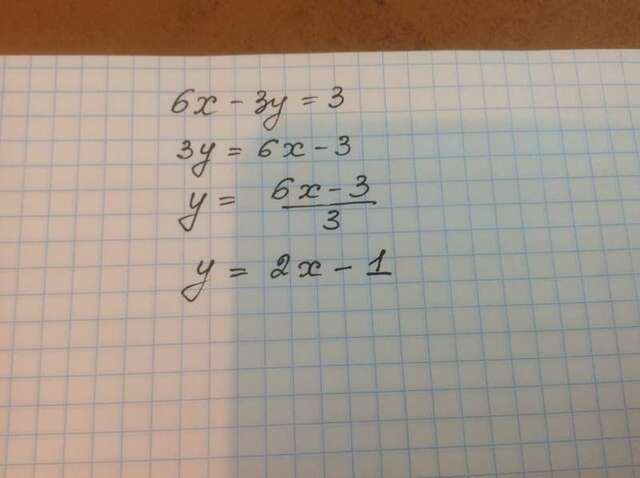 6x - 3y = 3
3y = 6x - 3
y = \frac{6x - 3}{3}
y = 2x - 1